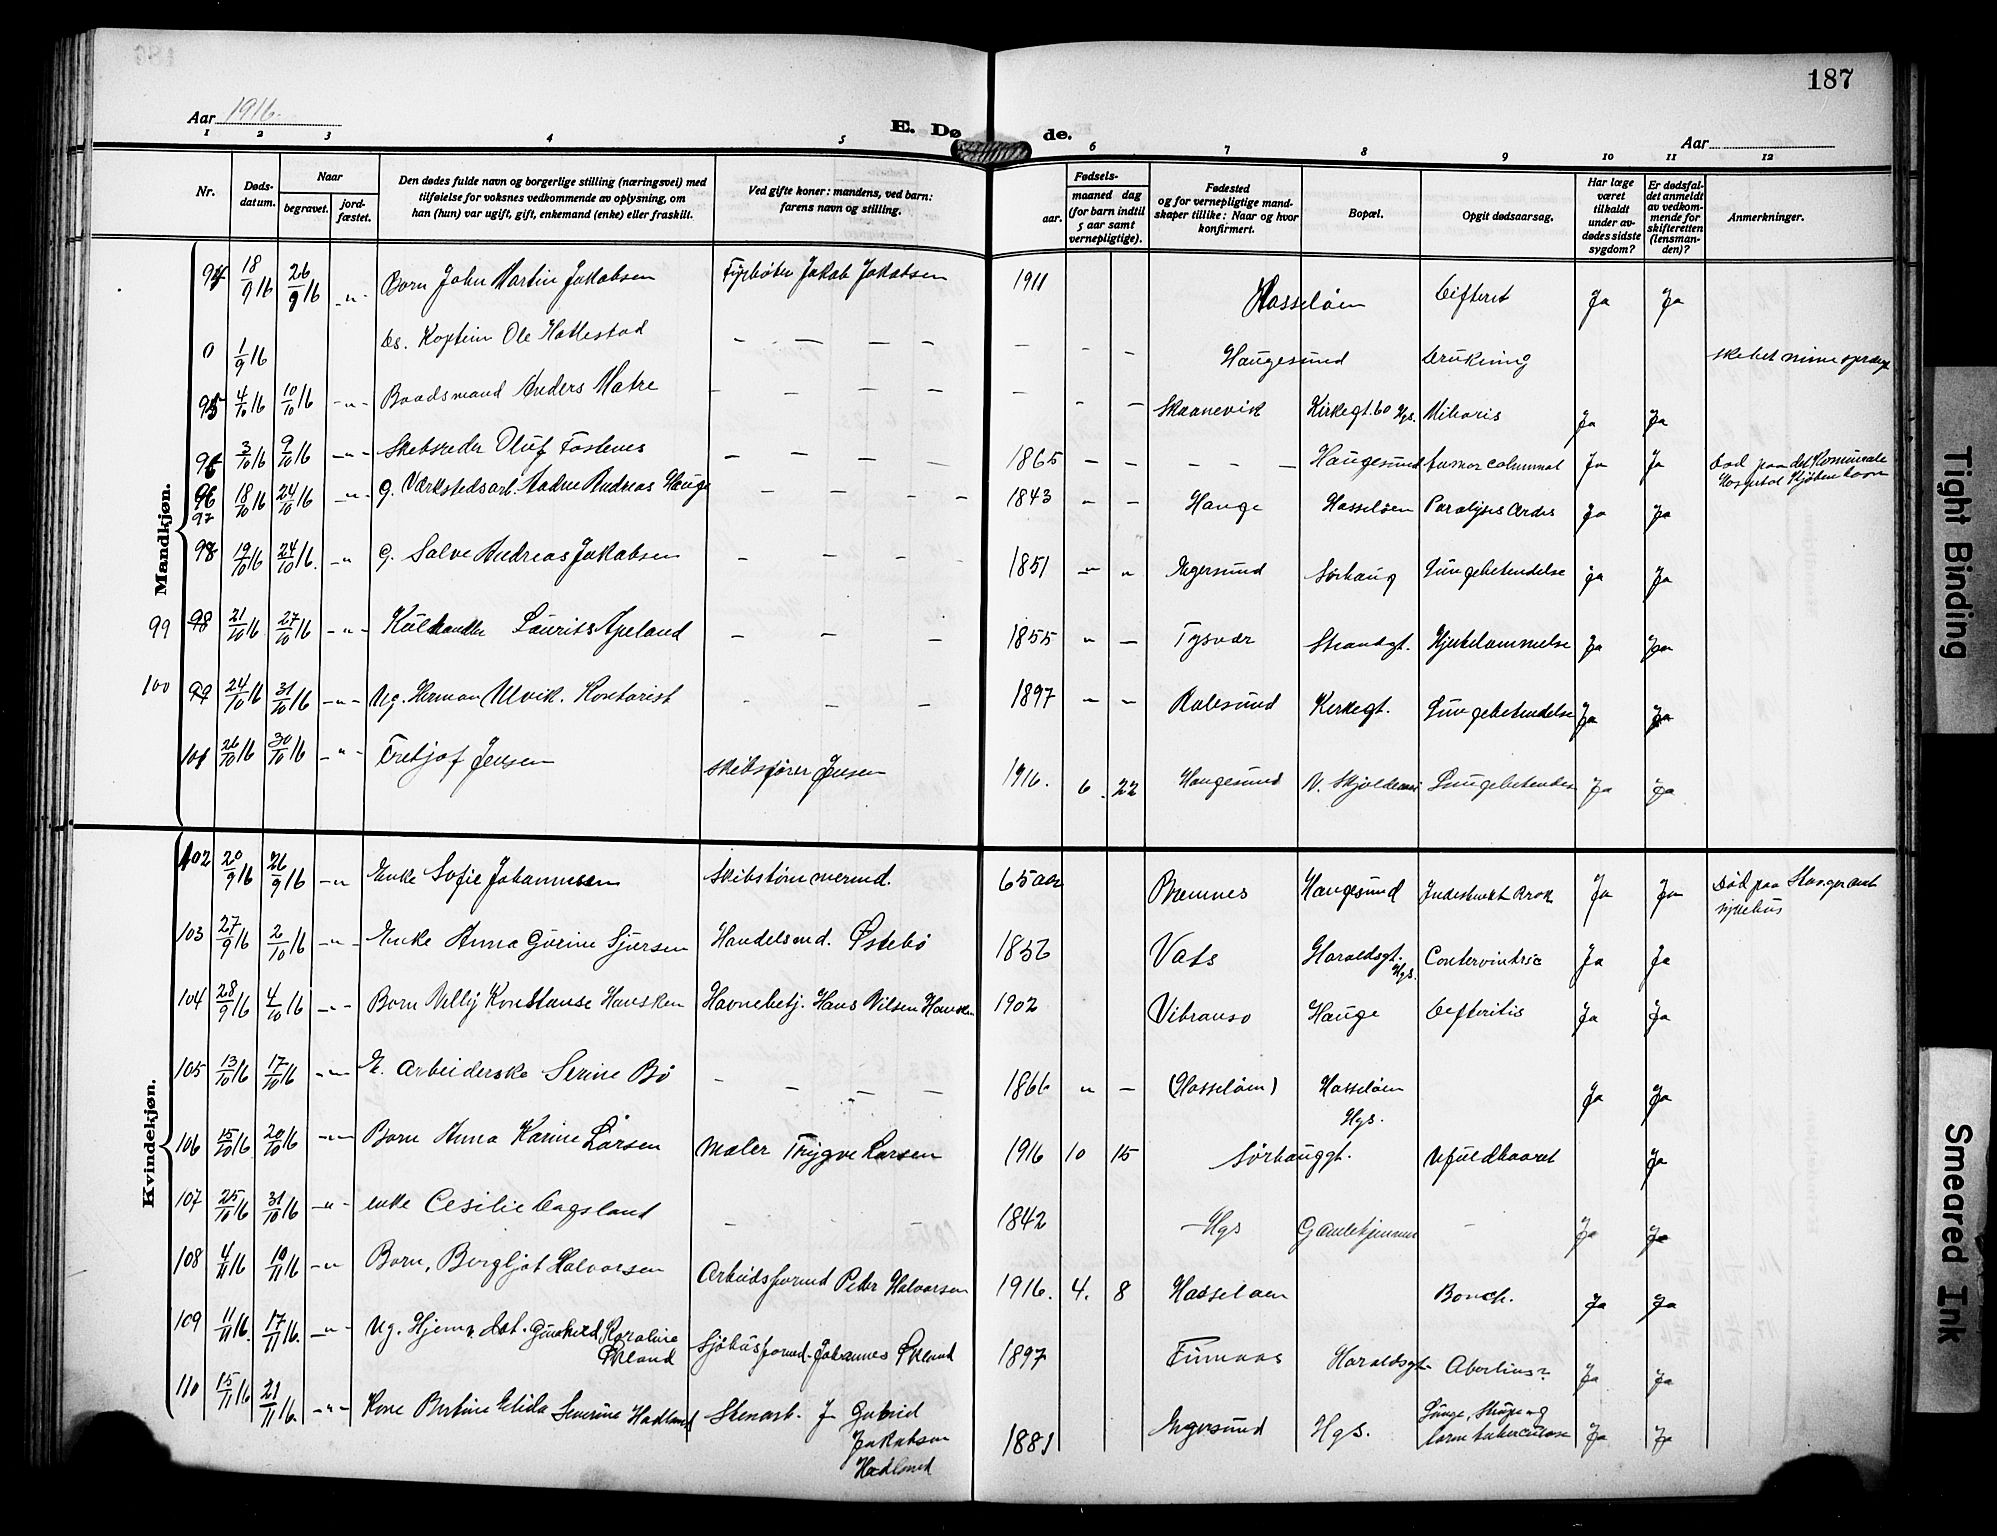 187
Aar 1916.
E. Dø
de.
Aar
1 2 3 4 5 6 7 8 9 10 11 12
Nr.
Døds-
datum.
Naar
begravet.
jord-
fæstet.
Den dødes fulde navn og borgerlige stilling (næringsvei) med
tilføielse for voksnes vedkommende av oplysning, om
han (hun) var ugift, gift, enkemand (enke) eller fraskilt.
Ved gifte koner: mandens, ved barn:
farens navn og stilling.
Fødsels-
aar.
maaned dag
(for barn indtil
5 aar samt
vernepligtige).
Fødested
og for vernepligtige mand-
skaper tillike: Naar og hvor
konfirmert.
Bopæl.
Opgit dødsaarsag.
Har læge
været
tilkaldt
under av-
dødes sidste
sygdom?
Er dødsfal-
det anmeldt
av vedkom-
mende for
skifteretten
(lensman-
den)?
Anmerkninger.
Mandkjøn.
94 18/9 16 26/9 16 -"- Barn John Martin Jakobsen Fyrbøter Jakob Jakobsen 1911 Hasseløen Difterit Ja Ja
0 1/9 16 Ds. Kaptein Ole Hattestad — — — — — - — Haugesund Drukning skibet
95 4/10 16 10/10 16 -"- Baadsmand Anders Matre — — — — — - — Skaanevik Kirkegt. 60 Hgs. Ja Ja
96 3/10 16 9/10 16 -"- Skibsreder Oluf Fostenes — — — — 1865 — — — — — Haugesund tumor Ja Ja Død paa det Komunale
Hospital Kjøbenhavn
96 97 18/10 16 24/10 16 -"- G. Værkstedsarb. Andreas Hauge — — — — 1843 - — Hauge Hasseløen Paralysis Ja Ja
98 19/10 16 24/10 16. -"- G. Salve Andreas Jakobsen — — — — 1851 " " Egersund Sørhaug Lungebetendelse ja Ja
99 98 21/10 16 27/10 16 -"- Kulhandler Laurits Apeland — — — 1855 " — Tysvær Strandgt. Hjertelammelse Ja Ja
100 99 24/10 16 31/10 16 -"- Ug. Herman Ulvik. Kontorist — — — 1897 - — Aalesund Kirkegt. Lungebetendelse Ja Ja
101 26/10 16 30/10 16 -"- Fretjof Jensen skibsfører Jensen 1916. 6. 22 Haugesund N. Ja Ja
Kvindekjøn.
102 20/9 16 26/9 16 -"- Enke Sofie Johannesen Skibstømmermd. 65 aar Bremnes Haugesund Ja Ja Død paa
sykehus
103 27/9 16 2/10 16 -"- Enke Anna Gurine Sjursen Handelsmd. Østebø 1856 Vats Haraldsgt. Hgs. Ja Ja
104 28/9 16 4/10 16 -"- Barn Villy Konstanse Hausken Havnebetj. Hans Nilsen Hausken 1902 Vibransø Hauge Defteritis Ja Ja
105 13/10 16 17/10 16 -"- E. Arbeiderske Serine Bø — — — — 1866 " — (Hasseløen) Hasseløen
Hgs. Ja Ja
106 15/10 16 20/10 16 -"- Barn Anna Karine Larsen Maler Trygve Larsen 1916 10 15 Sørhauggt. Ufuldbaaret Ja
107 25/10 16 31/10 16 -"- enke Cesilie Dagsland — — 1842 Hgs Gamlehjemmet — Ja Ja
108 4/11 16 10/11 16 -"- Barn, Bergljot Halvorsen Arbeidsformd Peder Halvorsen 1916. 4. 8 Hasseløen Bronch. Ja Ja
109 11/11 16. 17/11 16. -"- Ug. Hjemv. dat. Gunhild Karoline
Økland Sjøhusformd. Johannes Økland 1897 Finnaas Haraldsgt. Ja Ja
110 15/11 16 21/11 16. -"- Kone Bertine Elida Severine Hadland Stenarb. J Gabriel
Jakobsen
Hadland 1881 Egersund Hgs. Lunge, Strupe og
tarmtuberculose Ja Ja
Tight Binding
Smeared Ink